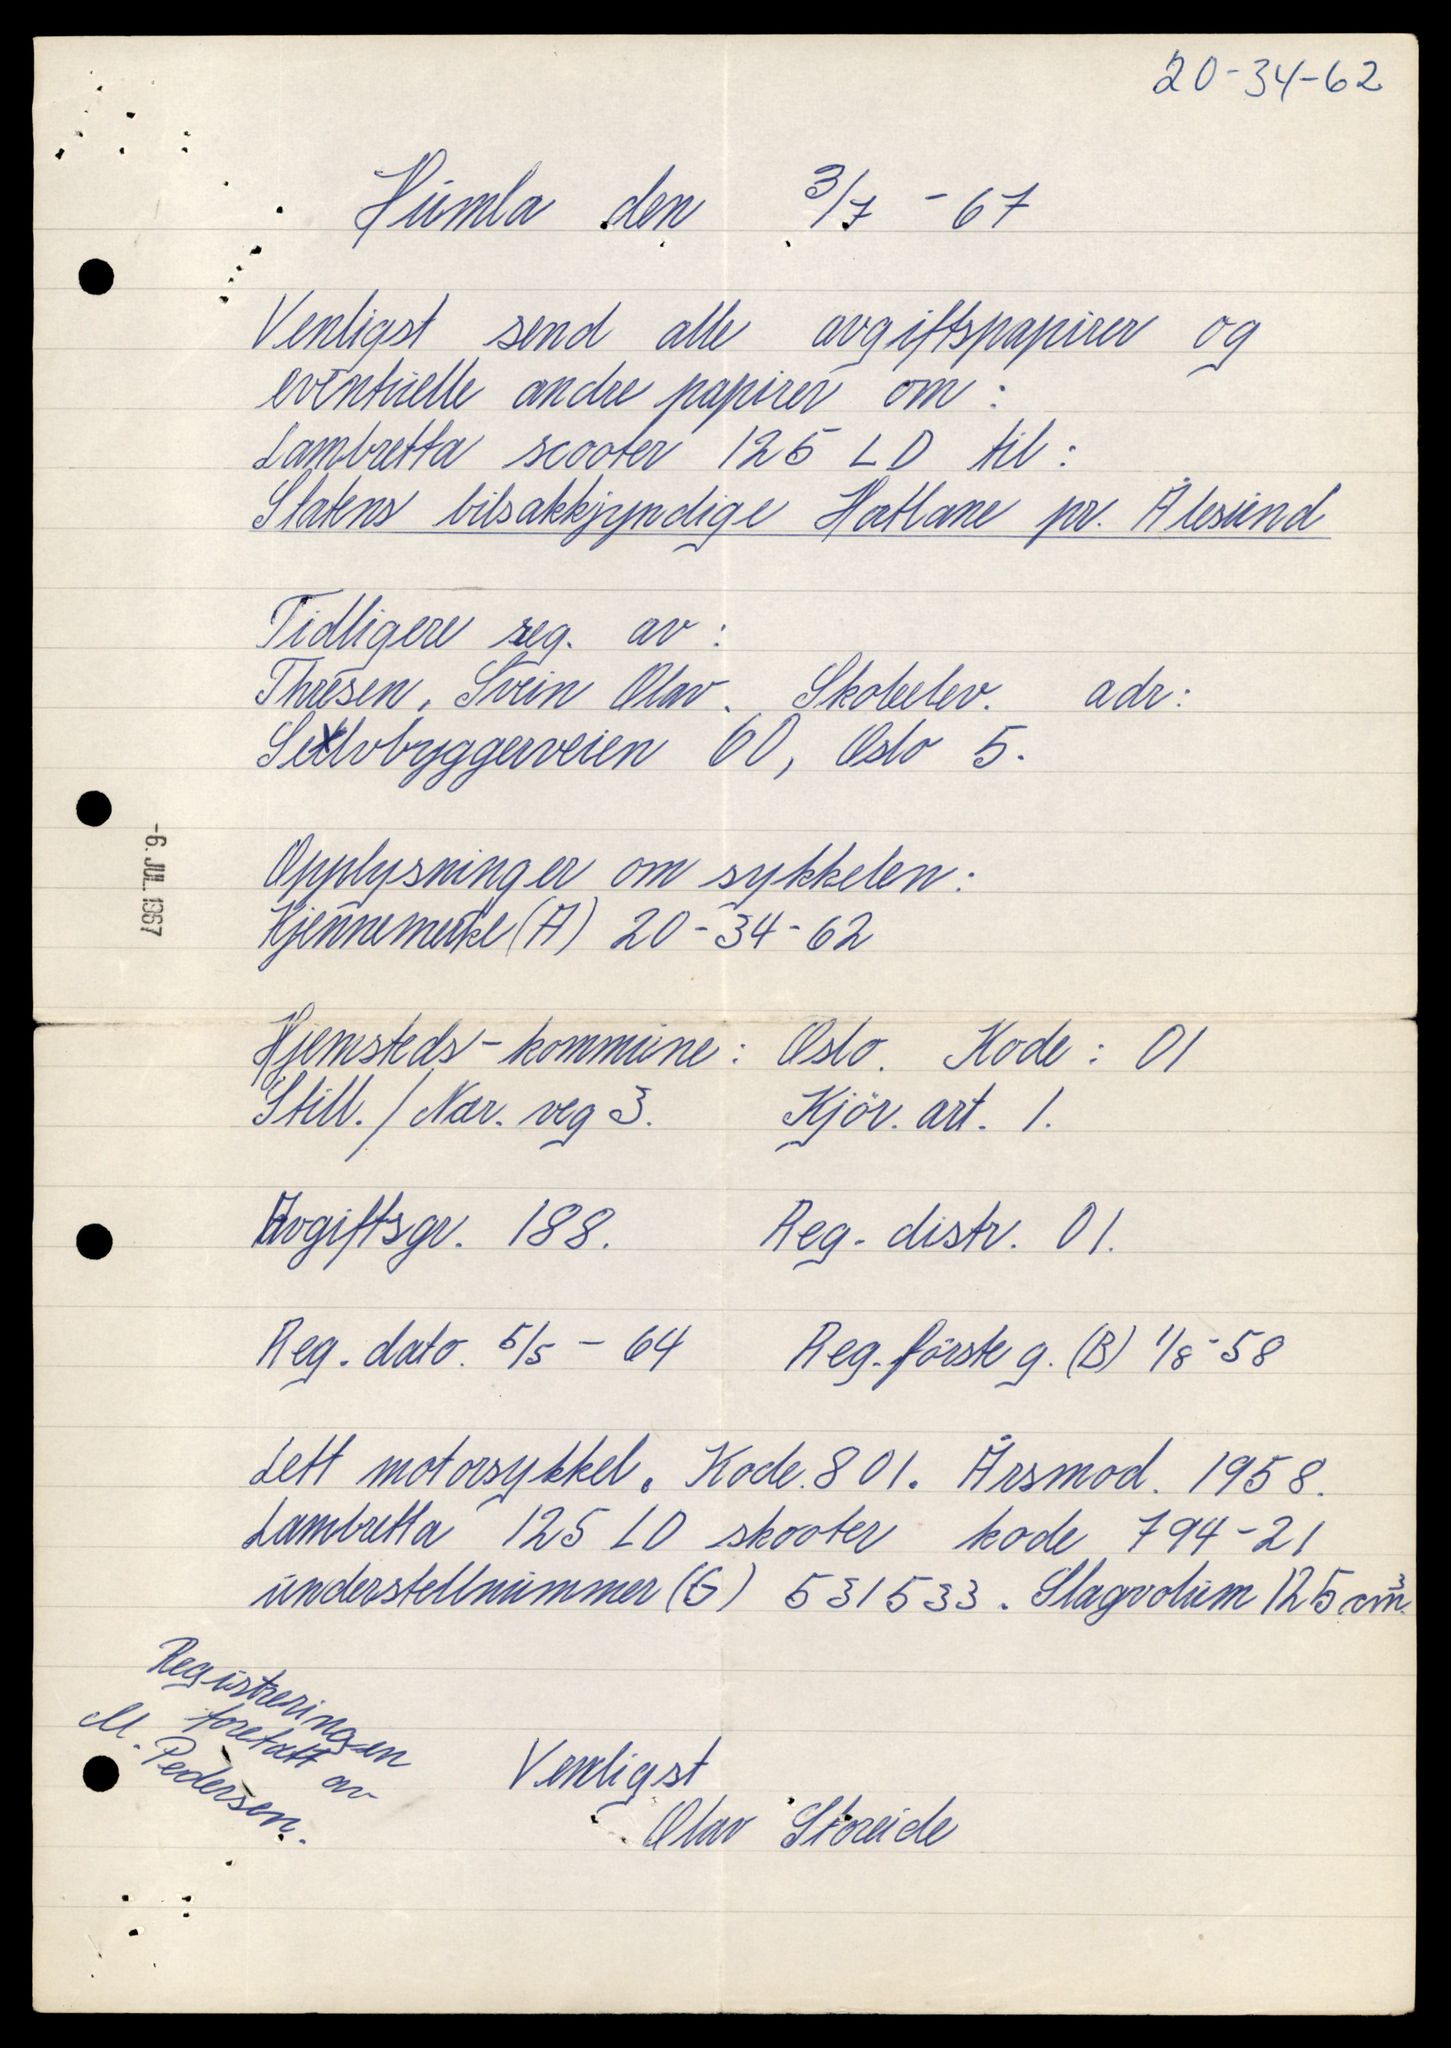 20-34-62
Humla den 3/7 - 67
Venligst send alle avgiftspapirer og
eventuelle andre papirer om:
Lambretta scooter 125 LD til:
Statens bilsakkjyndige Hatlane pr. Ålesund
Tidligere reg. av:
Thresen, Svein Olav. Skoleelev. adr:
Selvbyggerveien 60, Oslo 5.
-6. JUL. 1967
Opplysninger om sykkelen:
Kjennemerke (A) 20-34-62
Hjemsteds-kommune: Oslo. Kode: 01
Still. / Nær. veg 3. Kjör. art. 1.
Avgiftsgr. 188. Reg. distr. 01.
Reg. dato. 5/5 - 64 Reg. förste g. (B) 1/8-58
Lett motorsykkel. Kode. 801. Årsmod. 1958.
Lambretta 125 LD skooter kode 794-21
understellnummer (G) 531533. Slagvolum 125 cm³.
Registreringen
foretatt av
M. Pedersen.
Venligst
Olav Storeide